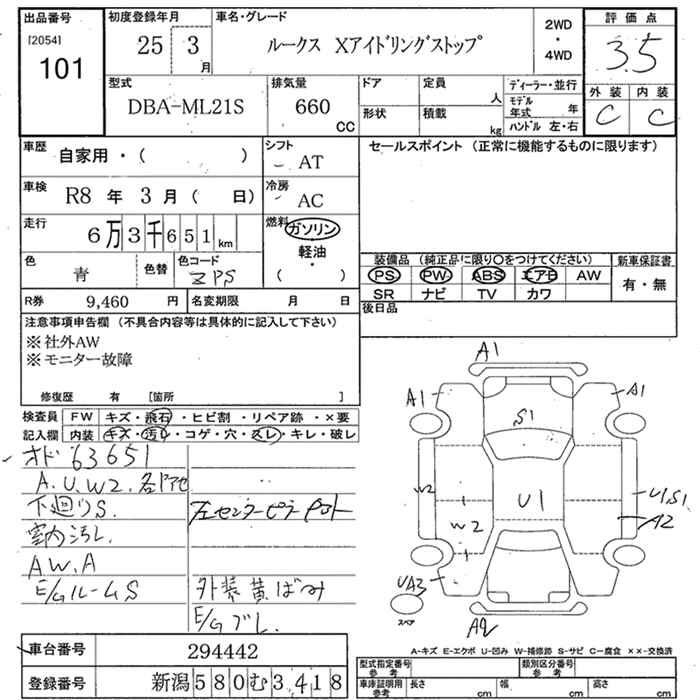 出品番号
[2054]
101
初度登録年月
25 3月
車名・グレード
ルークス Xアイドリングストップ
2WD
・
4WD
評価点
3.5
外装 内装
C C
型式
DBA-ML21S
排気量
660
CC
ドア
形状
定員
人
積載
kg
ディーラー・並行
モデル年式 年
ハンドル 左・右
車歴
自家用・( )
シフト
AT
車検
R8 年 3 月 ( 日)
冷房
AC
走行
6万3千651km
燃料
ガソリン
軽油・
( )
色
青
色替
色コード
ZPS
R券 9,460 円
名変期限 月 日
セールスポイント (正常に機能するものに限ります)
装備品 (純正品に限り○をつけてください)
PS PW ABS エアB AW
SR ナビ TV カワ
新車保証書
有・無
後日品
注意事項申告欄 (不具合内容等は具体的に記入して下さい)
※社外AW
※モニター故障
修復歴 有 [箇所 ]
検査員記入欄
FW キズ・飛石・ヒビ割・リペア跡・×要
内装 キズ・汚レ・コゲ・穴・スレ・キレ・破レ
オド 63651
A.U.W2.各ドアセ
下廻りS.
左センターピラー
室内汚レ.
AW.A
E/GルームS
外装黄ばみ
E/Gブレ.
A1
A1
A1
S1
W2
U1
U1S1
A2
W2
UA3
スペア
A2
A-キズ E-エクボ U-凹み W-補修跡 S-サビ C-腐食 ××-交換済
車台番号 294442
登録番号 新潟580む3418
型式指定番号 参考
類別区分番号 参考
車庫証明用 参考
長さ cm 幅 cm 高さ cm